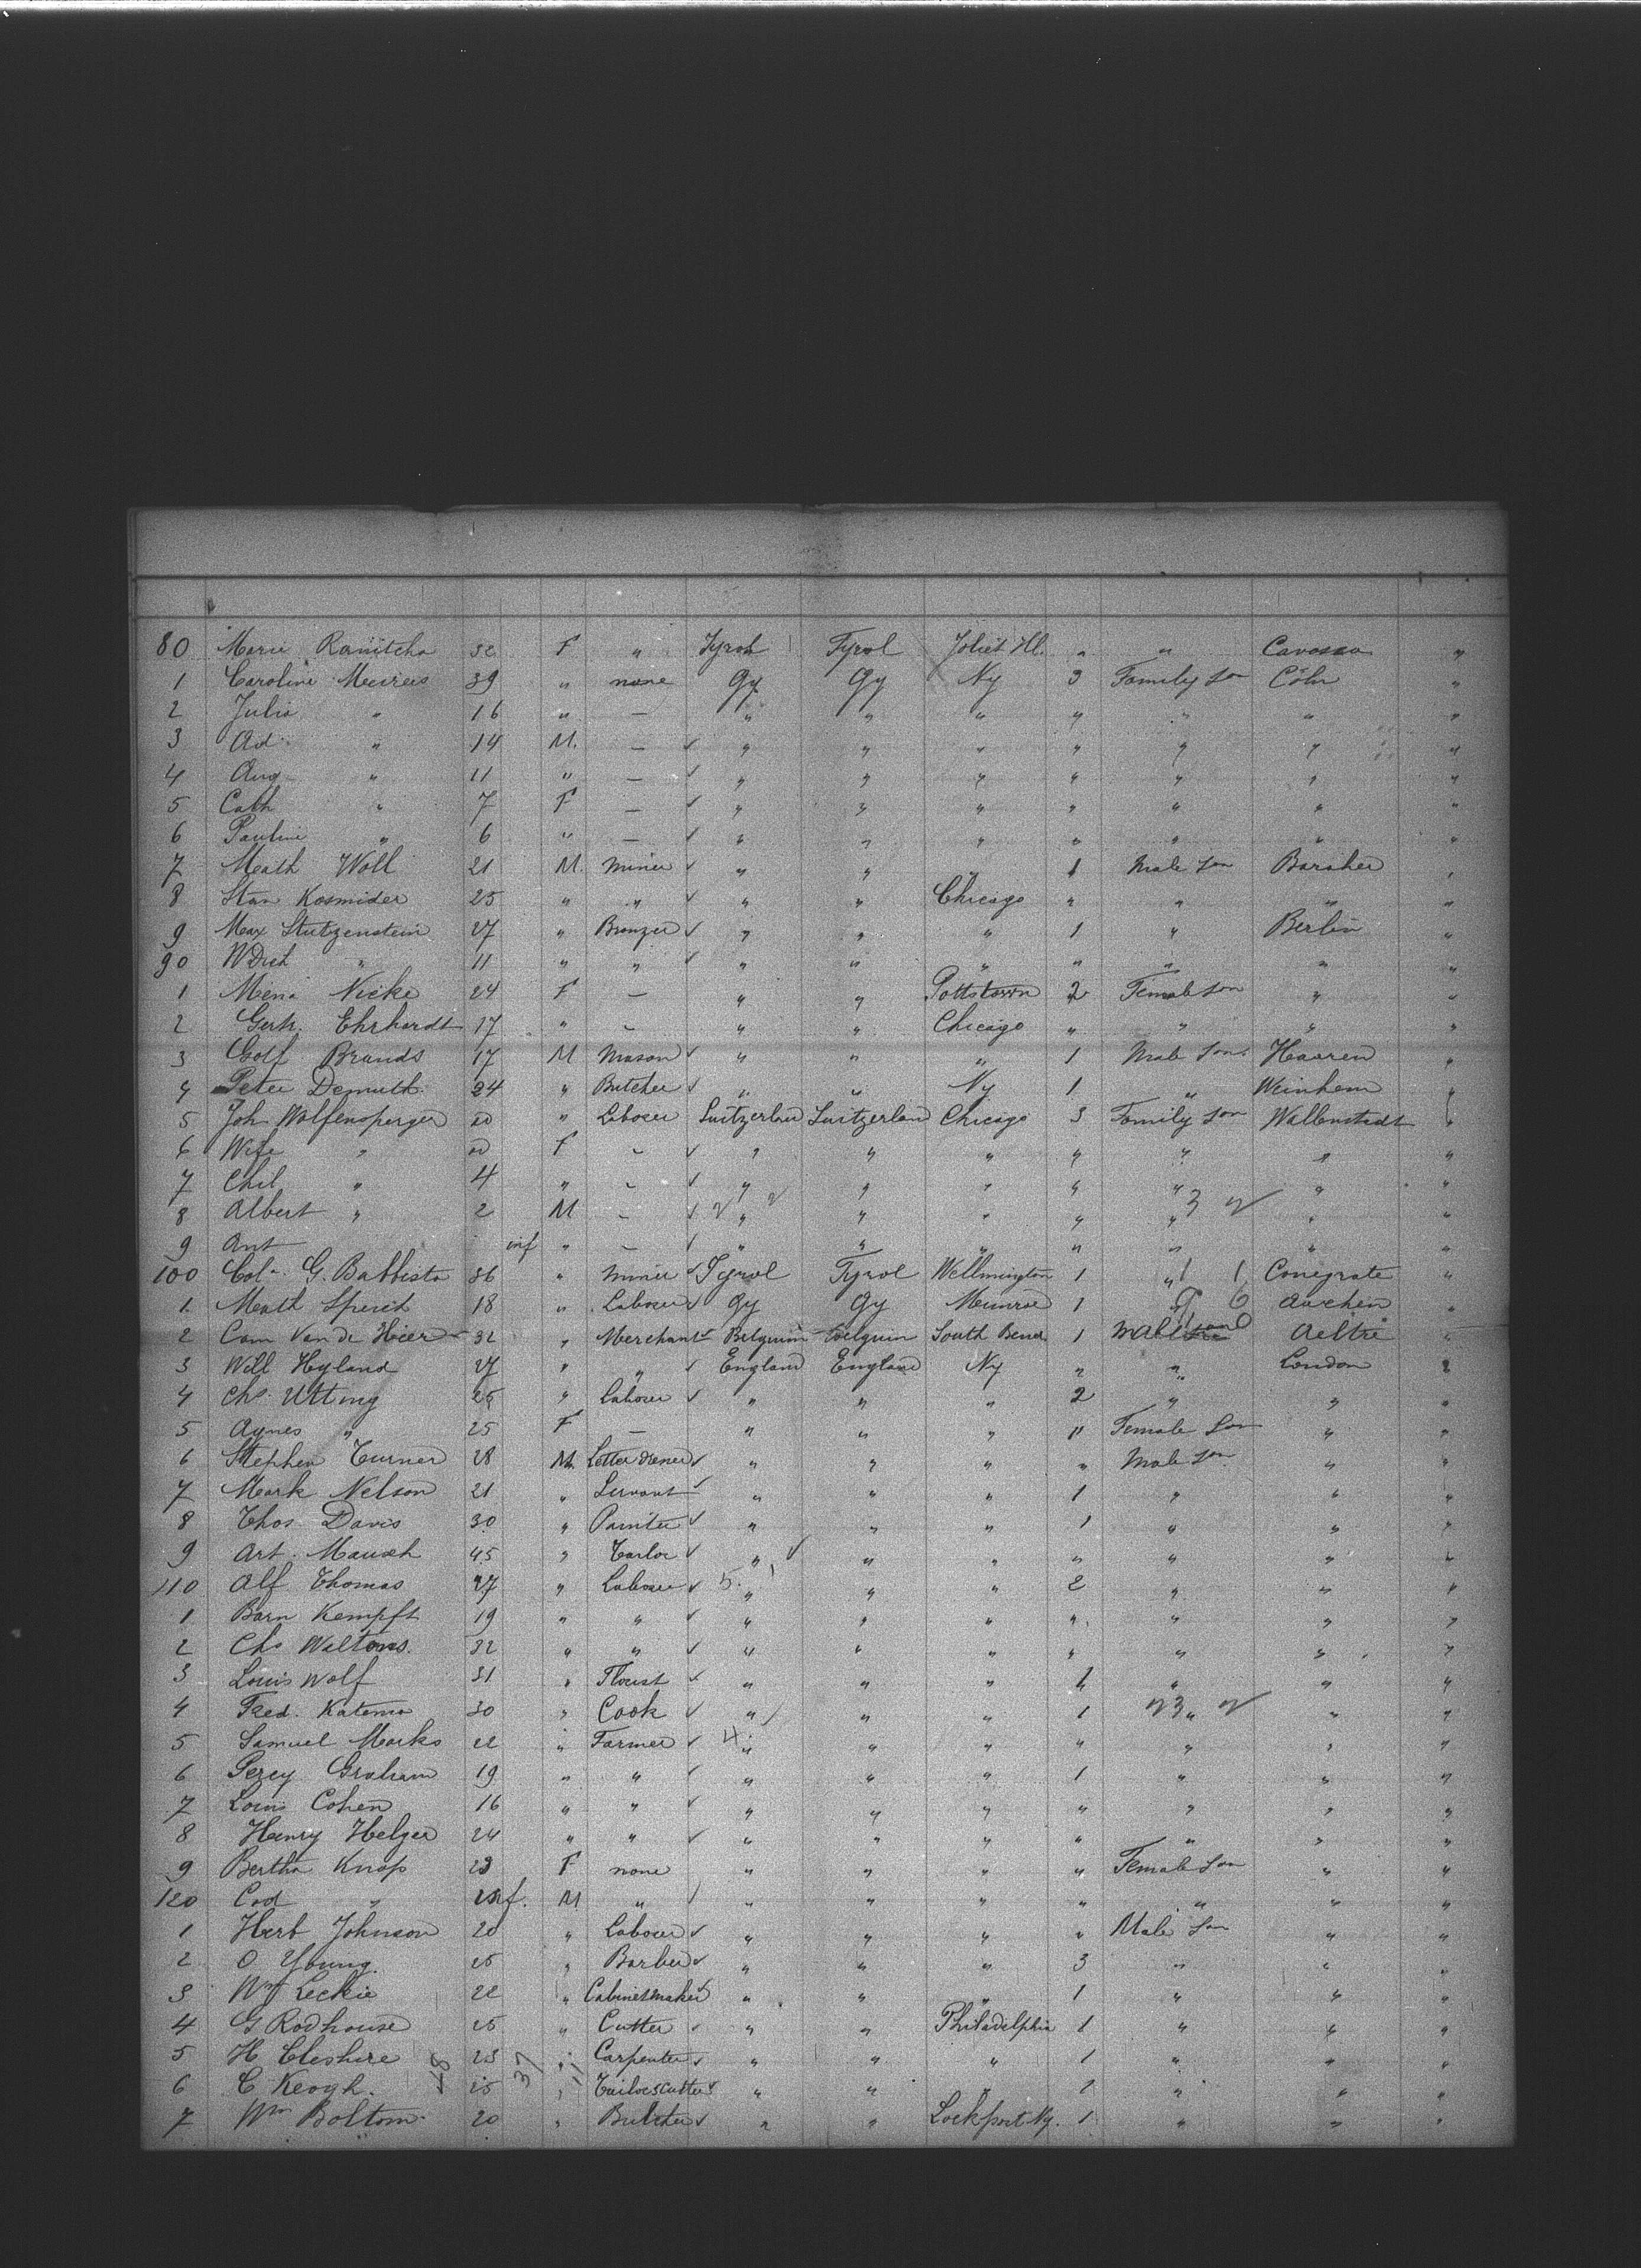 80 Marie Ranitcha 32 F " Tyrol Tyrol Joliet Ill. " " Cavosco "
1 Caroline Meurers 39 " none Gy Gy Ny 3 Family son Cöln "
2 Julia " 16 " — " " " " " " "
3 Ad " 14 M. — ✓ " " " " " " "
4 Aug " 11 " — ✓ " " " " " " "
5 Cath " 7 F — ✓ " " " " " " "
6 Pauline " 6 " — ✓ " " " " " " "
7 Math Woll 21 M. Miner ✓ " " " 1 Male son "
8 Stan Kosmider 25 " " ✓ " " Chicago " " " "
9 Max Stutzenstein 27 " Bronzer ✓ " " " 1 " Berlin "
90 " 11 " " ✓ " " " " " " "
1 Mena Nicke 24 F — " " Pottstown 2 Female son " "
2 Gerh. Ehrhardt 17 " — " " Chicago " " " "
3 Golf Brands 17 M Mason ✓ " " " 1 Male son. Haaren "
4 Peter Demuth 24 " Butcher ✓ " " Ny 1 " Weinhem "
5 Joh Wolfensperger " Laborer Suitzerland Suitzerland Chicago 3 Family son Wallenstadt "
6 Wife " F — ✓ " " " " " " "
7 Chil " 4 " — ✓ " " " " " " "
8 Albert " 2 M — ✓ " " " " " " "
9 Ant inf " — ✓ " " " " " " "
100 Col. G. Battista 36 " Miner ✓ Tyrol Tyrol Wellmington 1 " Conegrate "
1 Math Speich 18 " Laborer ✓ Gy Gy Munroe 1 " Aachen "
2 Cam Van de Heer 32 " Merchant ✓ Belguim Belguin South Bend 1 Male son Aeltre "
3 Will Hyland 27 " " ✓ England England Ny " " London "
4 Chs. Utting 25 " Laborer ✓ " " " 2 " " "
5 Agnes " 25 F — " " " " Female Son " "
6 Stephen Turner 28 M. Letter drener ✓ " " " " Male son " "
7 Mark Nelson 21 " Servant ✓ " " " 1 " " "
8 Thos. Davis 30 " Painter ✓ " " " 1 " " "
9 Art. Mauch 45 " Tailor ✓ " " " " " " "
110 Alf Thomas 27 " Laborer ✓ " " " 2 " " "
1 Barn Kempft 19 " " ✓ " " " " " " "
2 Chs Waltons. 32 " " ✓ " " " " " " "
3 Louis Wolf 31 " Florist ✓ " " " 1 " " "
4 Fred. Katema 30 " Cook ✓ " " " 1 " " "
5 Samuel Marks 22 " Farmer ✓ " " " " " " "
6 Percy Graham 19 " " ✓ " " " 1 " " "
7 Louis Cohen 16 " " ✓ " " " " " " "
8 Henry Helger 24 " " ✓ " " " " " " "
9 Bertha Knop 23 F none " " " " Female son " "
120 Cod " inf. M " " " " " " " "
1 Herb Johnson 20 " Laborer ✓ " " " " Male son " "
2 O Young. 25 " Barber ✓ " " " 3 " " "
3 Wm Leckie 22 " Cabinetmaker ✓ " " " 1 " " "
4 G Rodhouse 25 " Cutter ✓ " " Philadelphia 1 " " "
5 H Cleshire 23 " Carpenter ✓ " " " 1 " " "
6 C Keogh. 25 " Tailorscutter ✓ " " " 1 " " "
7 Wm Boltom. 20 " Butcher ✓ " " Lockport Ny. 1 " " "
48 37 11